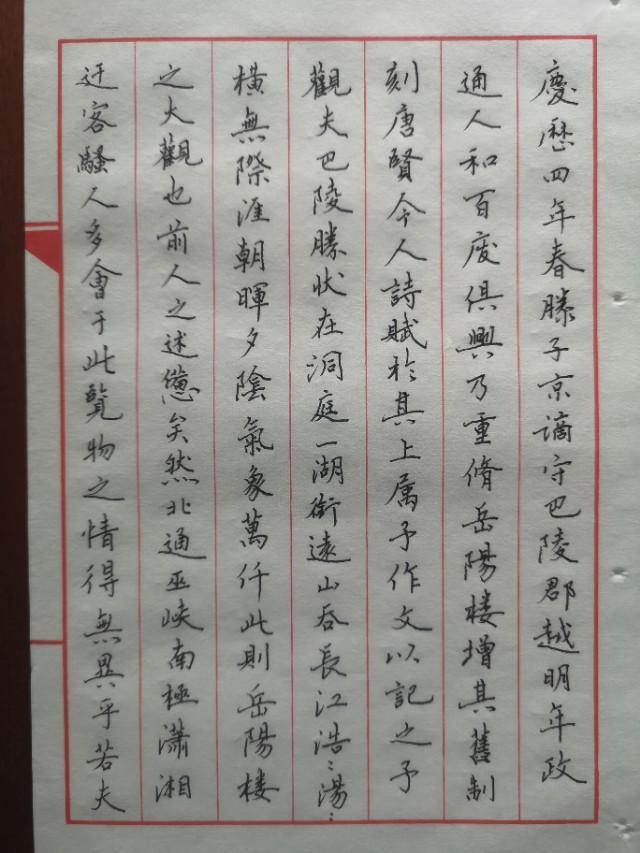 慶歷四年春滕子京謫守巴陵郡越明年政
通人和百廢俱興乃重脩岳陽楼增其舊制
刻唐賢今人詩賦於其上属予作文以記之予
觀夫巴陵勝状在洞庭一湖銜遠山吞長江浩〻湯〻
橫無際涯朝暉夕陰氣象萬仟此則岳陽楼
之大觀也前人之述俻矣然北通巫峽南極瀟湘
迁客騷人多會于此覽物之情得無異乎若夫